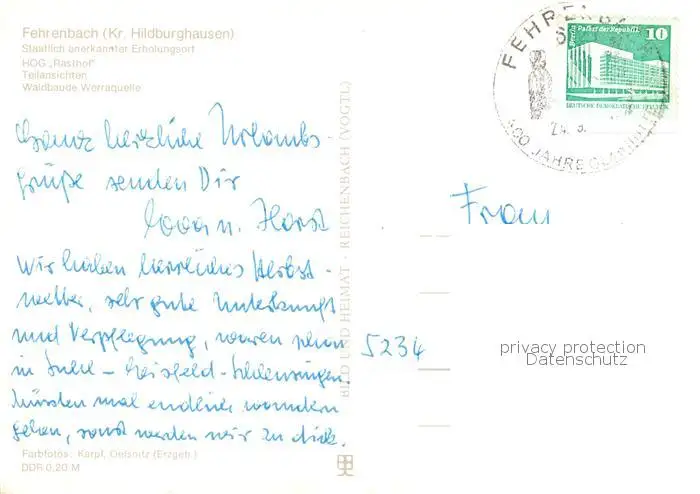 Fehrenbach (Kr. Hildburghausen)
Staatlich anerkannter Erholungsort
HOG „Rasthof"
Teilansichten
Waldbaude Werraquelle
Ganz herzliche Urlaubs-
grüße senden Dir
u. Horst
Wir haben herrliches Herbst-
wetter, sehr gute Unterkunft
und Verpflegung, waren schon
in Suhl – Eisfeld – Schleusingen,
müssten mal endlich wandern
gehen, sonst werden wir zu dick.
Farbfotos: Karpf, Oelsnitz (Erzgeb.)
DDR 0,20 M
BILD UND HEIMAT · REICHENBACH (VOGTL)
FEHRENBA
400 JAHRE
24.
Berlin, Palast der Republik
10
DEUTSCHE DEMOKRATISCHE
Frau
5234
privacy protection
Datenschutz